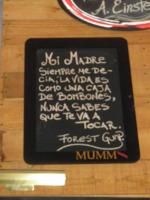 A. Einste
Mi MADRE
SIEMPRE ME DE-
CIA: LA VIDA ES
COMO UNA CAJA
DE BOMBONES,
NUNCA SABES
QUE TE VA A
TOCAR.
FOREST GUMP
MUMM